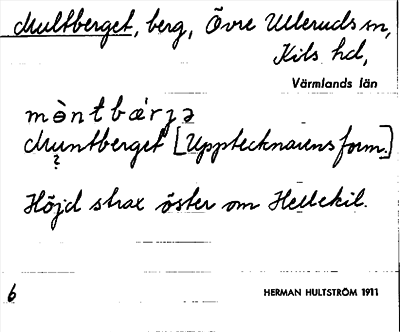 Multberget, berg, Övre Ulleruds sn,
Kils hd,
Värmlands län
mə̀ntbærjə
Muntberget [Upptecknarens form.]
?
Höjd strax öster om Hellekil.
6 HERMAN HULTSTRÖM 1911